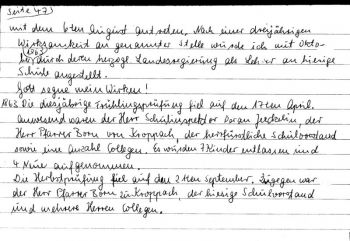 Seite 47)
mit dem 6ten August antreten. Nach einer dreijährigen
Wirksamkeit an genannter Stelle wurde ich mit Okto-
ber (1863) durch deren herzogl. Landesregierung als Lehrer an hiesige
Schule angestellt.
Gott segne mein Wirken!
1863. Die dreijährige Frühlingsprüfung fiel auf den 17ten April.
Anwesend waren der Herr Schulinspektor Dekan, der
Herr Pfarrer Born von Kroppach, der herzfürstliche Schulvorstand
sowie eine Anzahl Collegen. Es wurden 7 Kinder entlassen und
4 Neue aufgenommen.
Die Herbstprüfung fiel auf den 21ten September. Zugegen war
der Herr Pfarrer Born zu Kroppach, der hiesige Schulvorstand
und mehrere Herren Collegen.